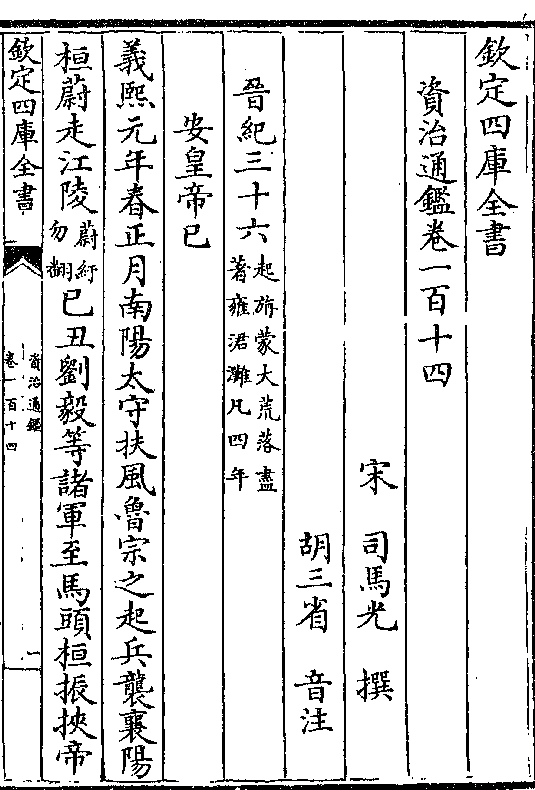 欽定四庫全書
資治通鑑卷一百十四
宋 司馬光 撰
胡三省 音注
晉紀三十六起旃蒙大荒落盡著雍涒灘凡四年
安皇帝己
義熙元年春正月南陽太守扶風魯宗之起兵襲襄陽
桓蔚走江陵蔚紆勿翻己丑劉毅等諸軍至馬頭桓振挾帝
欽定四庫全書
資治通鑑
卷一百十四
一